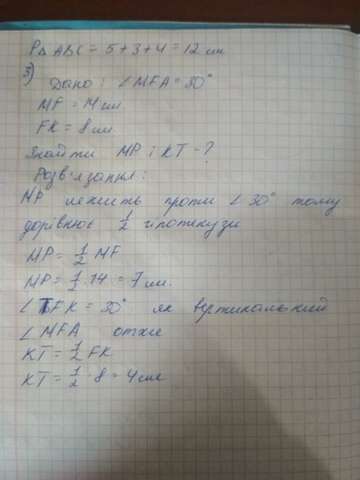 P△ ABC = 5 + 3 + 4 = 12 см
3)
Дано: ∠MFA = 30°
MF = 14 см
FK = 8 см
Знайти MP і KT - ?
Розв'язання:
MP лежить проти ∠30° тому
дорівнює 1/2 гіпотенузи
MP = 1/2 MF
MP = 1/2 · 14 = 7 см.
∠TFK = 30° як вертикальний
∠MFA отже
KT = 1/2 FK
KT = 1/2 · 8 = 4 см